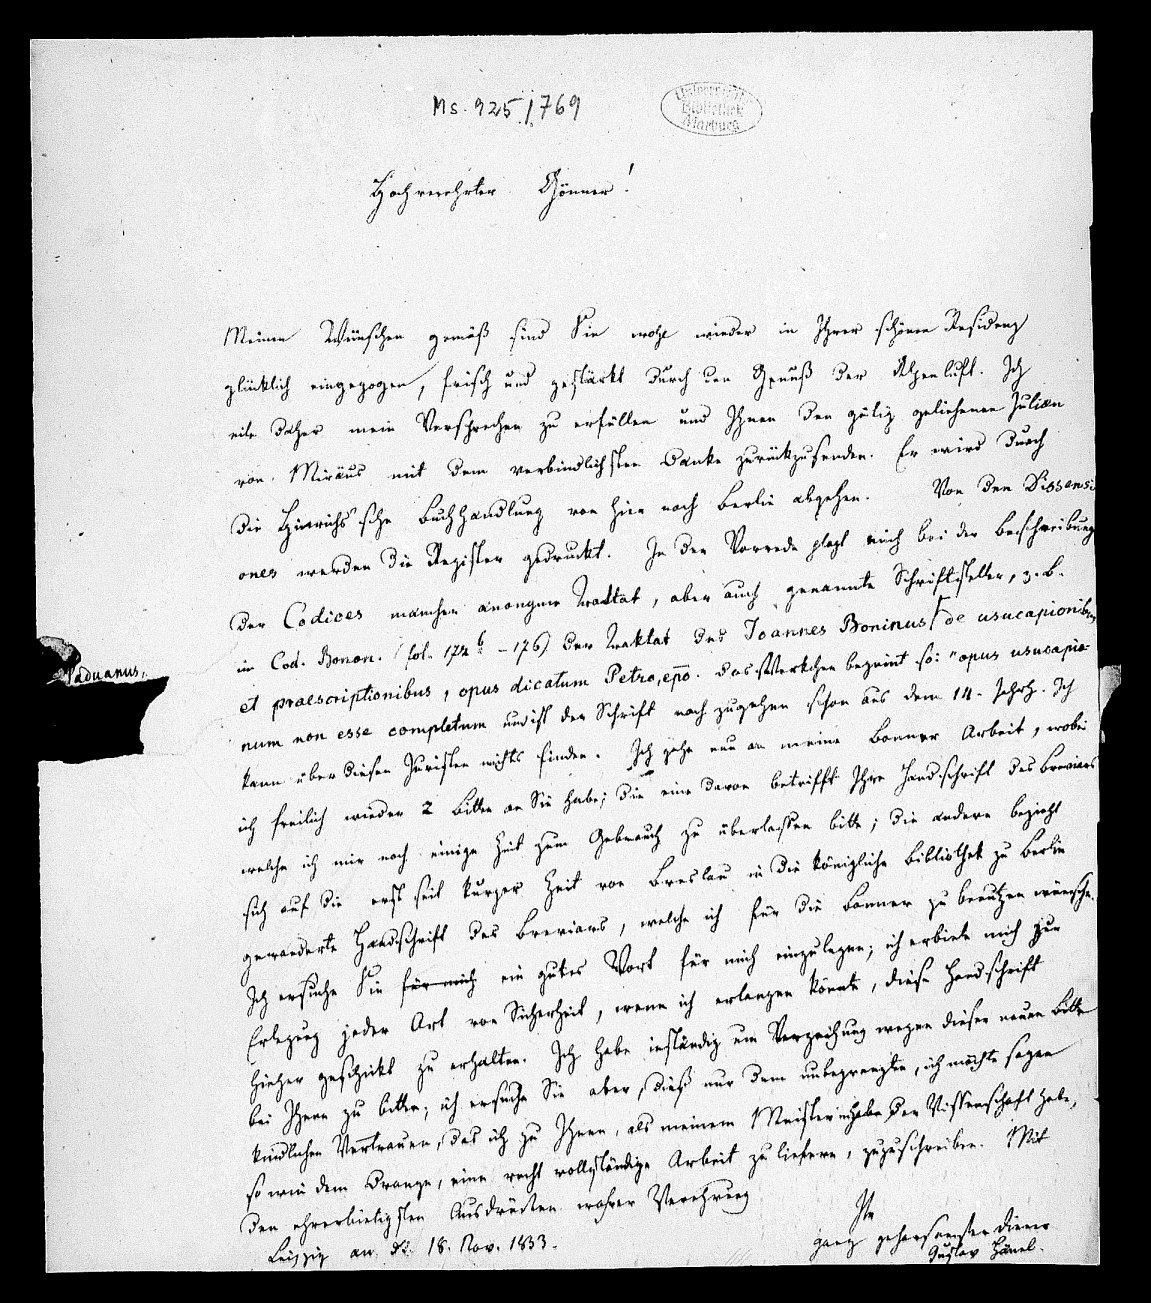 Ms. 925/769
Universitäts
Bibliothek
Marburg
Hochverehrter Gönner!
Meinen Wünschen gemäß sind Sie wohl wieder in Ihrer schönen Residenz
glücklich eingezogen, frisch und gestärkt durch den Genuß der Alpenluft. Ich
eile daher mein Versprechen zu erfüllen und Ihnen den gütig geliehenen Julian
von Miräus mit dem verbindlichsten Danke zurückzusenden. Er wird durch
die Hinrichs'sche Buchhandlung von hier nach Berlin abgehen. Von den Dissensi
ones werden die Register gedruckt. In der Vorrede plagt mich bei der Beschreibung
der Codices mancher anonyme Traktat, aber auch genannte Schriftsteller, z. B.
im Cod. Bonon. (fol. 174b - 176) der Traktat des Joannes Boninus de usucapionibus
Paduanus,
et praescriptionibus, opus dicatum Petro, epo. das Werkchen beginnt so: "opus usucapio-
num non esse completum und ist der Schrift nach zugehen schon aus dem 14. Jahrh. Ich
kann über diesen Juristen nichts finden. Ich gehe nun an meine Bonner Arbeit, wobei
ich freilich wieder 2 Bitten an Sie habe; die eine davon betrifft Ihre Handschrift des Breviars
welche ich mir noch einige Zeit zum Gebrauch zu überlassen bitte; die andere bezieht
sich auf die erst seit kurzer Zeit von Breslau in die königliche Bibliothek zu Berlin
gewanderte Handschrift des Breviars, welche ich für die Bonner zu benutzen wünsche.
Ich ersuche Sie für mich ein gutes Wort für mich einzulegen; ich erbiete mich zur
Erlegung jeder Art von Sicherheit, wenn ich erlangen könnte, diese Handschrift
hieher geschickt zu erhalten. Ich habe inständig um Verzeihung wegen dieser neuen Bitte
bei Ihnen zu bitten; ich ersuche Sie aber, dieß nur dem unbegrenzten, ich möchte sagen
kindlichen Vertrauen, das ich zu Ihnen, als meinem Meister in der Wissenschaft habe,
so wie dem Drange, eine recht vollständige Arbeit zu liefern, zuzuschreiben. Mit
den ehrerbietigsten Ausdrücken wahrer Verehrung
Ihr
Leipzig am d. 18. Nov. 1833.
ganz gehorsamster Diener
Gustav Hänel.